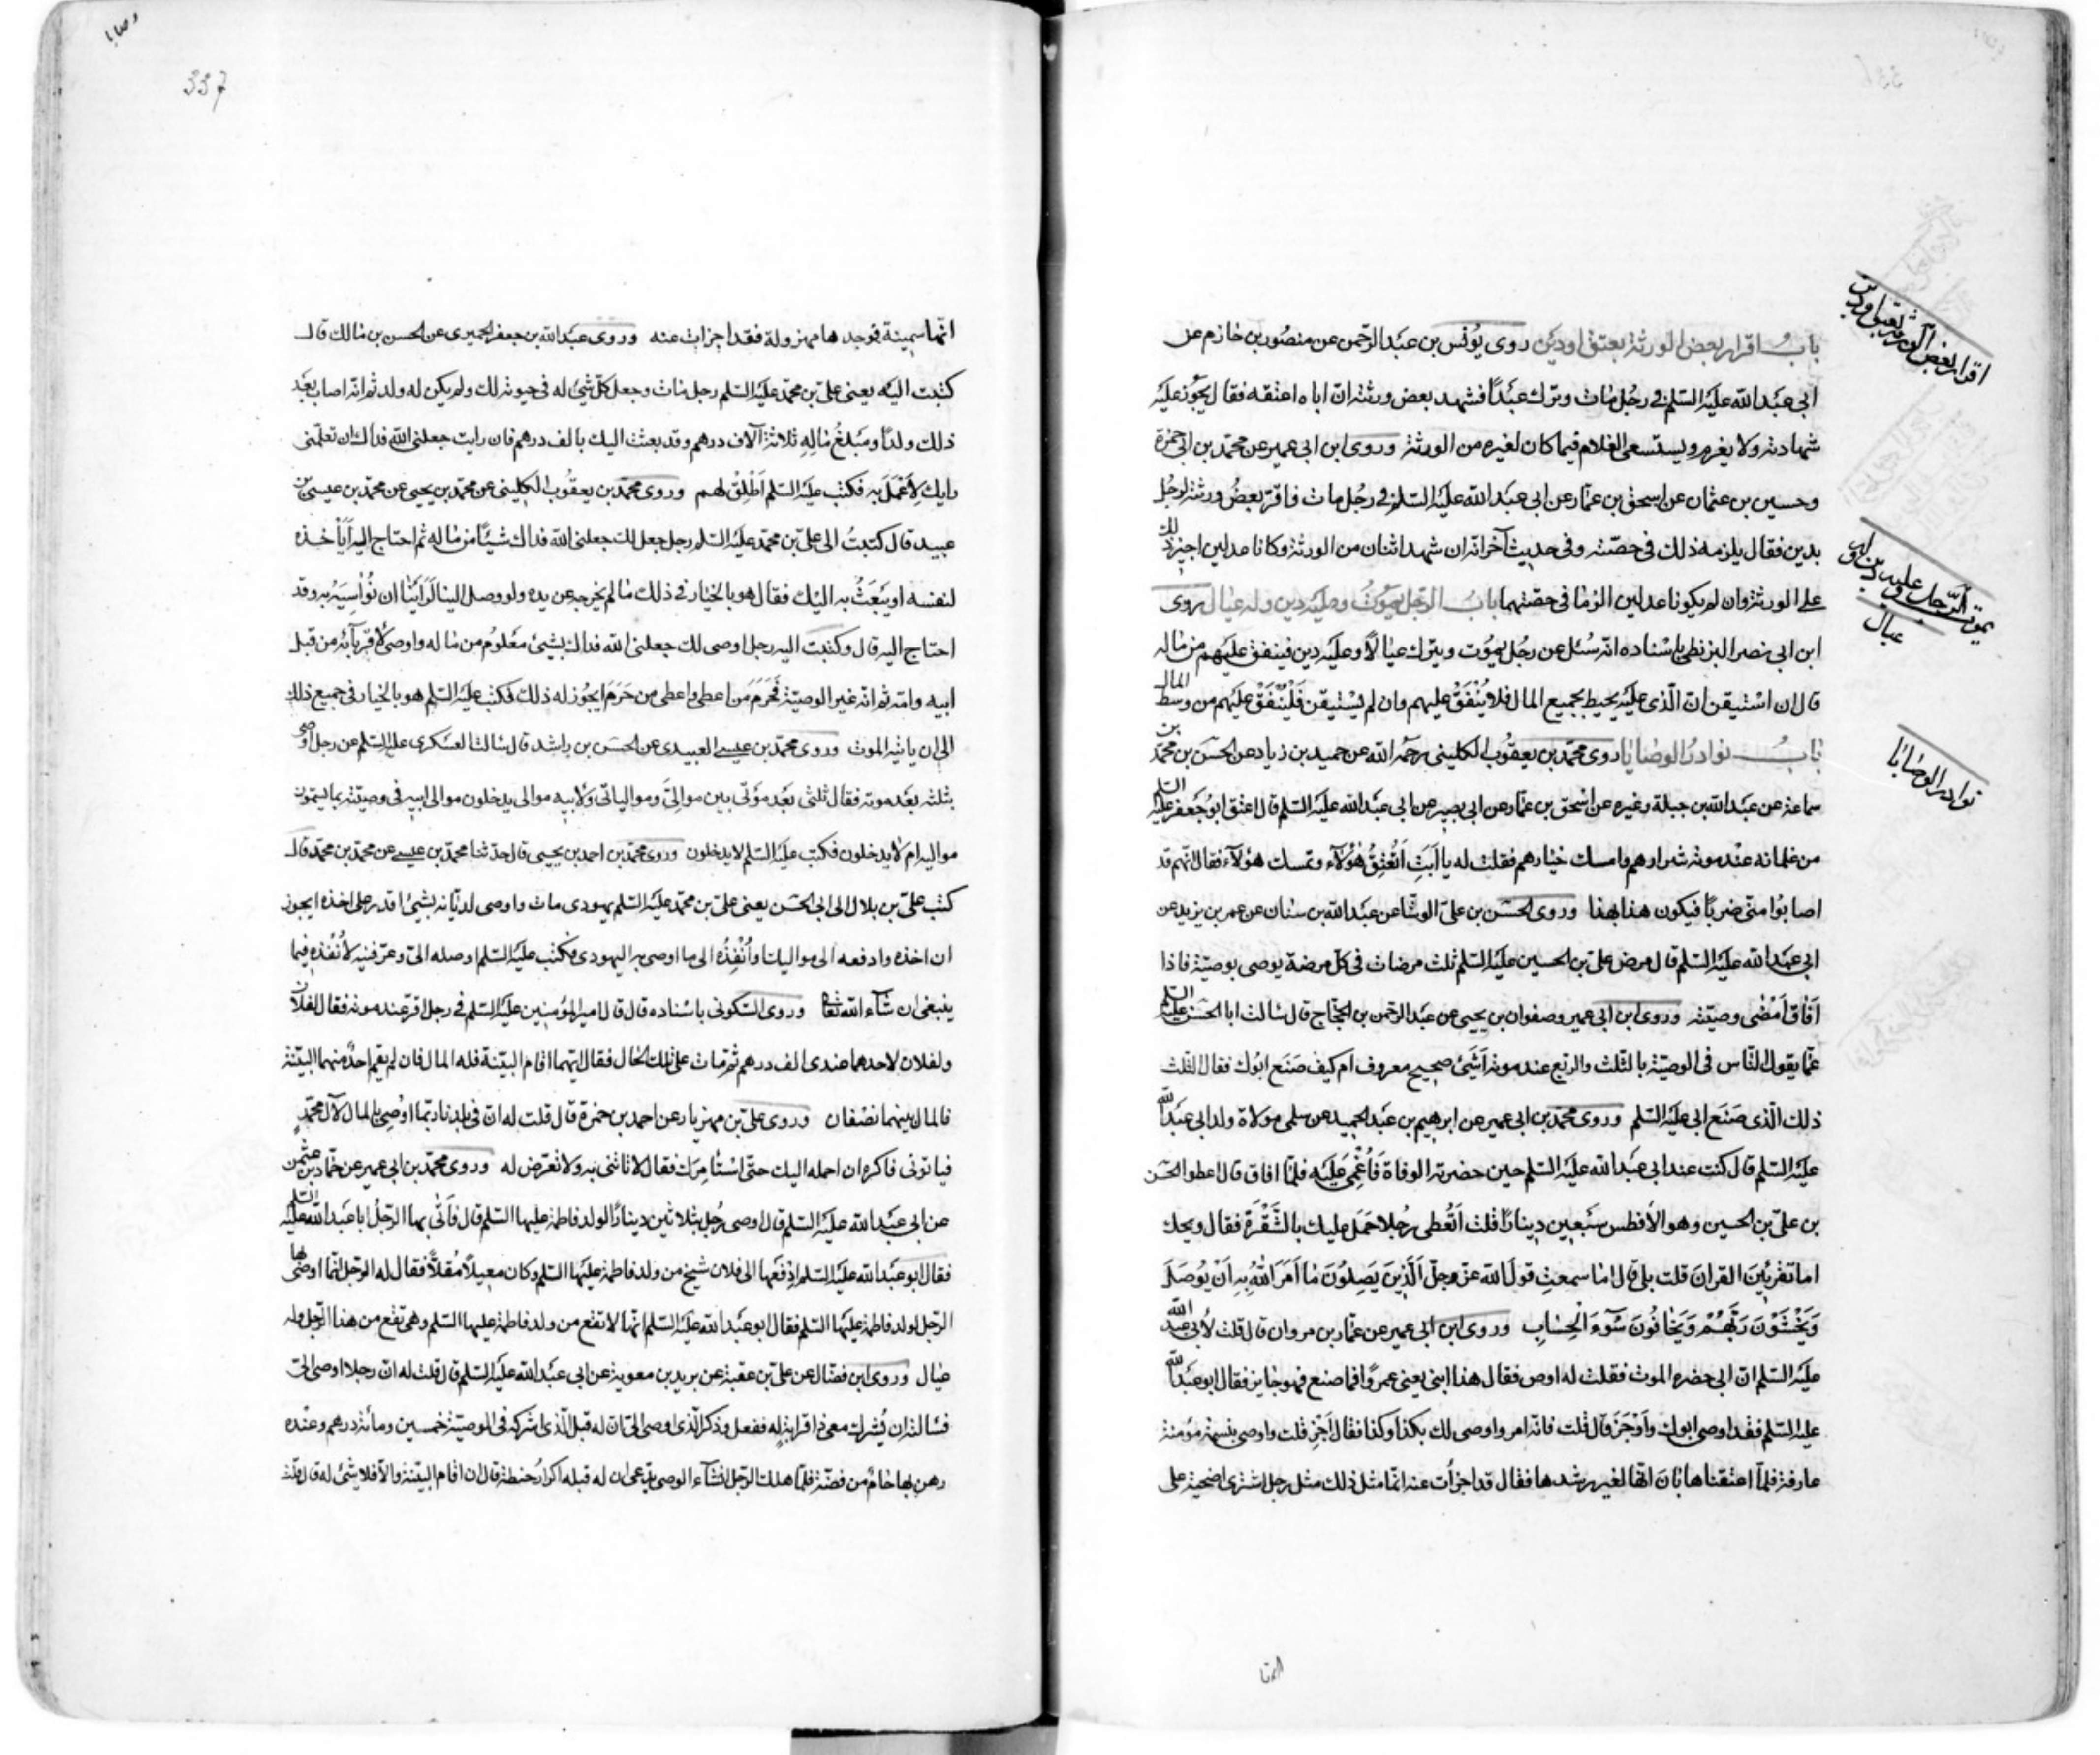 باب اقرار بعض الورثة بعتق او دين روى يونس بن عبد الرحمن عن منصور بن حازم عن
ابى عبد الله عليه السلم فى رجل مات وترك عبدًا فشهد بعض ورثته ان اباه اعتقه فقال يجوز عليه
شهادته ولا يغرم ويستسعى الغلام فيما كان لغيره من الورثة وروى ابن ابى عمير عن محمد بن ابى حمزة
وحسين بن عثمان عن اسحق بن عمار عن ابى عبد الله عليه السلم فى رجل مات فاقرّ بعض ورثته لرجل
بدين فقال يلزمه ذلك فى حصّته وفى حديث آخر انّه ان شهد اثنان من الورثة وكانا عدلين اجيز ذلك
على الورثة وان لم يكونا عدلين الزما فى حصّتهما باب الرجل يموت وعليه دين وله عيال روى
ابن ابى نصر البزنطى باسناده انّه سُئل عن رجل يموت ويترك عيالًا وعليه دين فينفق عليهم من ماله
قال ان استيقن انّ الّذى عليه يحيط بجميع المال فلا يُنْفَقْ عليهم وان لم يستيقن فَلْيُنْفَقْ عليهم من وسط المال
باب نوادر الوصايا روى محمد بن يعقوب الكلينى رحمه الله عن حميد بن زياد عن الحسن بن محمد بن
سماعة عن عبد الله بن جبلة وغيره عن اسحق بن عمار عن ابى بصير عن ابى عبد الله عليه السلم قال اعتق ابو جعفر عليه السلم
من غلمانه عند موته شرارهم وامسك خيارهم فقلت له يا اَبَتِ اَتُعْتِقُ هؤلآء وتمسك هؤلآء فقال انّهم قد
اصابوا منّى ضربًا فيكون هذا بهذا وروى الحسن بن علىّ الوشّا عن عبد الله بن سنان عن عمر بن يزيد عن
ابى عبد الله عليه السلم قال مرض علىّ بن الحسين عليه السلم ثلث مرضات فى كل مرضة يوصى بوصيّة فاذا
اَفاق اَمْضى وصيّته وروى ابن ابى عمير وصفوان بن يحيى عن عبد الرحمن بن الحجّاج قال سالت ابا الحسن عليه السلم
عمّا يقول النّاس فى الوصيّة بالثلث والربع عند موته اَشَئ صحيح معروف ام كيف صَنَع ابوك فقال الثلث
ذلك الّذى صَنَع ابى عليه السلم وروى محمد بن ابى عمير عن ابرهيم بن عبد الحميد عن سلمى مولاة ولد ابى عبد الله
عليه السلم قال كنت عند ابى عبد الله عليه السلم حين حضرته الوفاة فَاُغْمِى عليه فلمّا افاق قال اعطوا الحسن
بن علىّ بن الحسين وهو الأفطس سبعين دينارًا قلت اَتُعْطى رجلا حَمَل عليك بالشَّفْرَة فقال ويحك
اما تقرئين القران قلت بلى قال اما سمعتِ قول الله عزّ وجلّ اَلَّذِينَ يَصِلُونَ مٰا اَمَرَ اللهُ بِهِ اَنْ يُوصَلَ
وَيَخْشَوْنَ رَبَّهُمْ وَيَخافُونَ سُوٓءَ الْحِسٰابِ وروى ابن ابى عمير عن عمّار بن مروان قال قلت لأبى عبد الله
عليه السلم انّ ابى حضره الموت فقلت له اوص فقال هذا ابنى يعنى عمروًا فما صنع فهو جايز فقال ابو عبد الله
عليه السلم فقد اوصى ابوك وَاَوْجَزَ قال قلت فانّه امر واوصى لك بكذا وكذا فقال اَجِزْ قلت واوصى بنسمة مؤمنة
عارفة فلمّا اعتقناها بَانَ انّها لغير رشدها فقال قد اجزأت عنه انّما مثل ذلك مثل رجل اشترى اضحية على
اقرار بعض الورثة بعتق او دين
يموت الرّجل وعليه دين وله
عيال
نوادر الوصايا
انّها
وصايا
337
انّها سمينة فوجدها مهزولة فقد اجزات عنه وروى عبد الله بن جعفر الحميرى عن الحسن بن مالك قال
كتبت اليه يعنى علىّ بن محمّد عليه السلم رجل مات وجعل كلّ شئ له فى حيوته لك ولم يكن له ولد ثم انّه اصاب بعد
ذلك ولدًا ومَبْلَغُ مٰالِهِ ثلاثة آلاف درهم وقد بعثت اليك بالف درهم فان رايت جعلنى الله فداك ان تعلّمنى
رايك لأَعْمَلَ به فكتب عليه السلم اَطْلِقْ لهم وروى محمّد بن يعقوب الكلينى عن محمّد بن يحيى عن محمّد بن عيسى بن
عبيد قال كتبتُ الى علىّ بن محمّد عليه السلم رجل جعل لك جعلنى الله فداك شيئًا من ماله ثم احتاج اليه اَيَأخذه
لنفسه او يَبْعَثُ به اليك فقال هو بالخيار فى ذلك ما لم يخرجه عن يده ولو وصل الينا لَرَاَيْنا ان نُوٰاسِيَهُ به وقد
احتاج اليه قال وكتبت اليه رجل اوصى لك جعلنى الله فداك بشئ معلوم من ماله واوصى لأقربآئه من قبل
ابيه وامّه ثم انّه غير الوصيّة فَحَرَمَ من اعطى واعطى من حَرَمَ ايجوز له ذلك فكتب عليه السلم هو بالخيار فى جميع ذلك
الى ان ياتيه الموت وروى محمّد بن عيسى العبيدى عن الحسن بن راشد قال سالت العسكرى عليه السلم عن رجل اوصى
بثلثه بعد موته فقال ثلثى بعد موتى بين موالىّ وموالياتى ولأبيه موالى يدخلون موالى ابيه فى وصيّته بما يسمّون
مواليه ام لا يدخلون فكتب عليه السلم لا يدخلون وروى محمّد بن احمد بن يحيى قال حدّثنا محمّد بن عيسى عن محمّد بن محمّد قال
كتب علىّ بن بلال الى ابى الحسن يعنى علىّ بن محمّد عليه السلم يهودى مات واوصى لديّانه بشئ اقدر على اخذه ايجوز
ان اخذه وادفعه الى مواليك او اُنْفِذُه الى ما اوصى به اليهودى فكتب عليه السلم اوصله الىّ وعرّفنيه لأُنْفِذه فيما
ينبغى ان شآء الله تعا وروى السكونى باسناده قال قال امير المؤمنين عليه السلم فى رجل اقرّ عند موته فقال لفلان
ولفلان لاحدهما عندى الف درهم ثم مات على تلك الحال فقال ايّهما اقام البيّنة فله المال فان لم يقم احدٌ منهما البيّنة
فالمال بينهما نصفان وروى علىّ بن مهزيار عن احمد بن حمزة قال قلت له ان فى بلدنا ربّما اُوصِىَ بالمال لآل محمّد
فياتونى فاكره ان احمله اليك حتّى اَسْتَأمِرَك فقال لا تاتنى به ولا تعرّض له وروى محمّد بن ابى عمير عن حمّاد بن عثمن
عن ابى عبد الله عليه السلم قال اوصى رجل بثلاثين دينارًا لولد فاطمة عليها السلم قال فَاَتَى بها الرّجلُ ابا عبد الله عليه السلم
فقال ابو عبد الله عليه السلم اِدْفَعْها الى فلان شيخ من ولد فاطمة عليها السلم وكان معيلًا مُقلًّا فقال له الرّجل انّما اوصى بها
الرّجل لولد فاطمة عليها السلم فقال ابو عبد الله عليه السلم انّها لا تقع من ولد فاطمة عليها السلم وهى تقع من هذا الرّجل وله
عيال وروى ابن فضّال عن علىّ بن عقبة عن بريد بن معوية عن ابى عبد الله عليه السلم قال قلت له انّ رجلا اوصى الىّ
فسالته ان يُشرك معى ذا قرابة له ففعل وذكر الّذى اوصى الىّ انّ له قبل الّذى اشركه فى الوصيّة خمسين ومائة درهم وعنده
رهن بها جامٌ من فضّة فلمّا هلك الرّجل انشآء الوصى يدّعى ان له قبله اكرار حنطة قال ان اقام البيّنة والّا فلا شئ له قال قلت